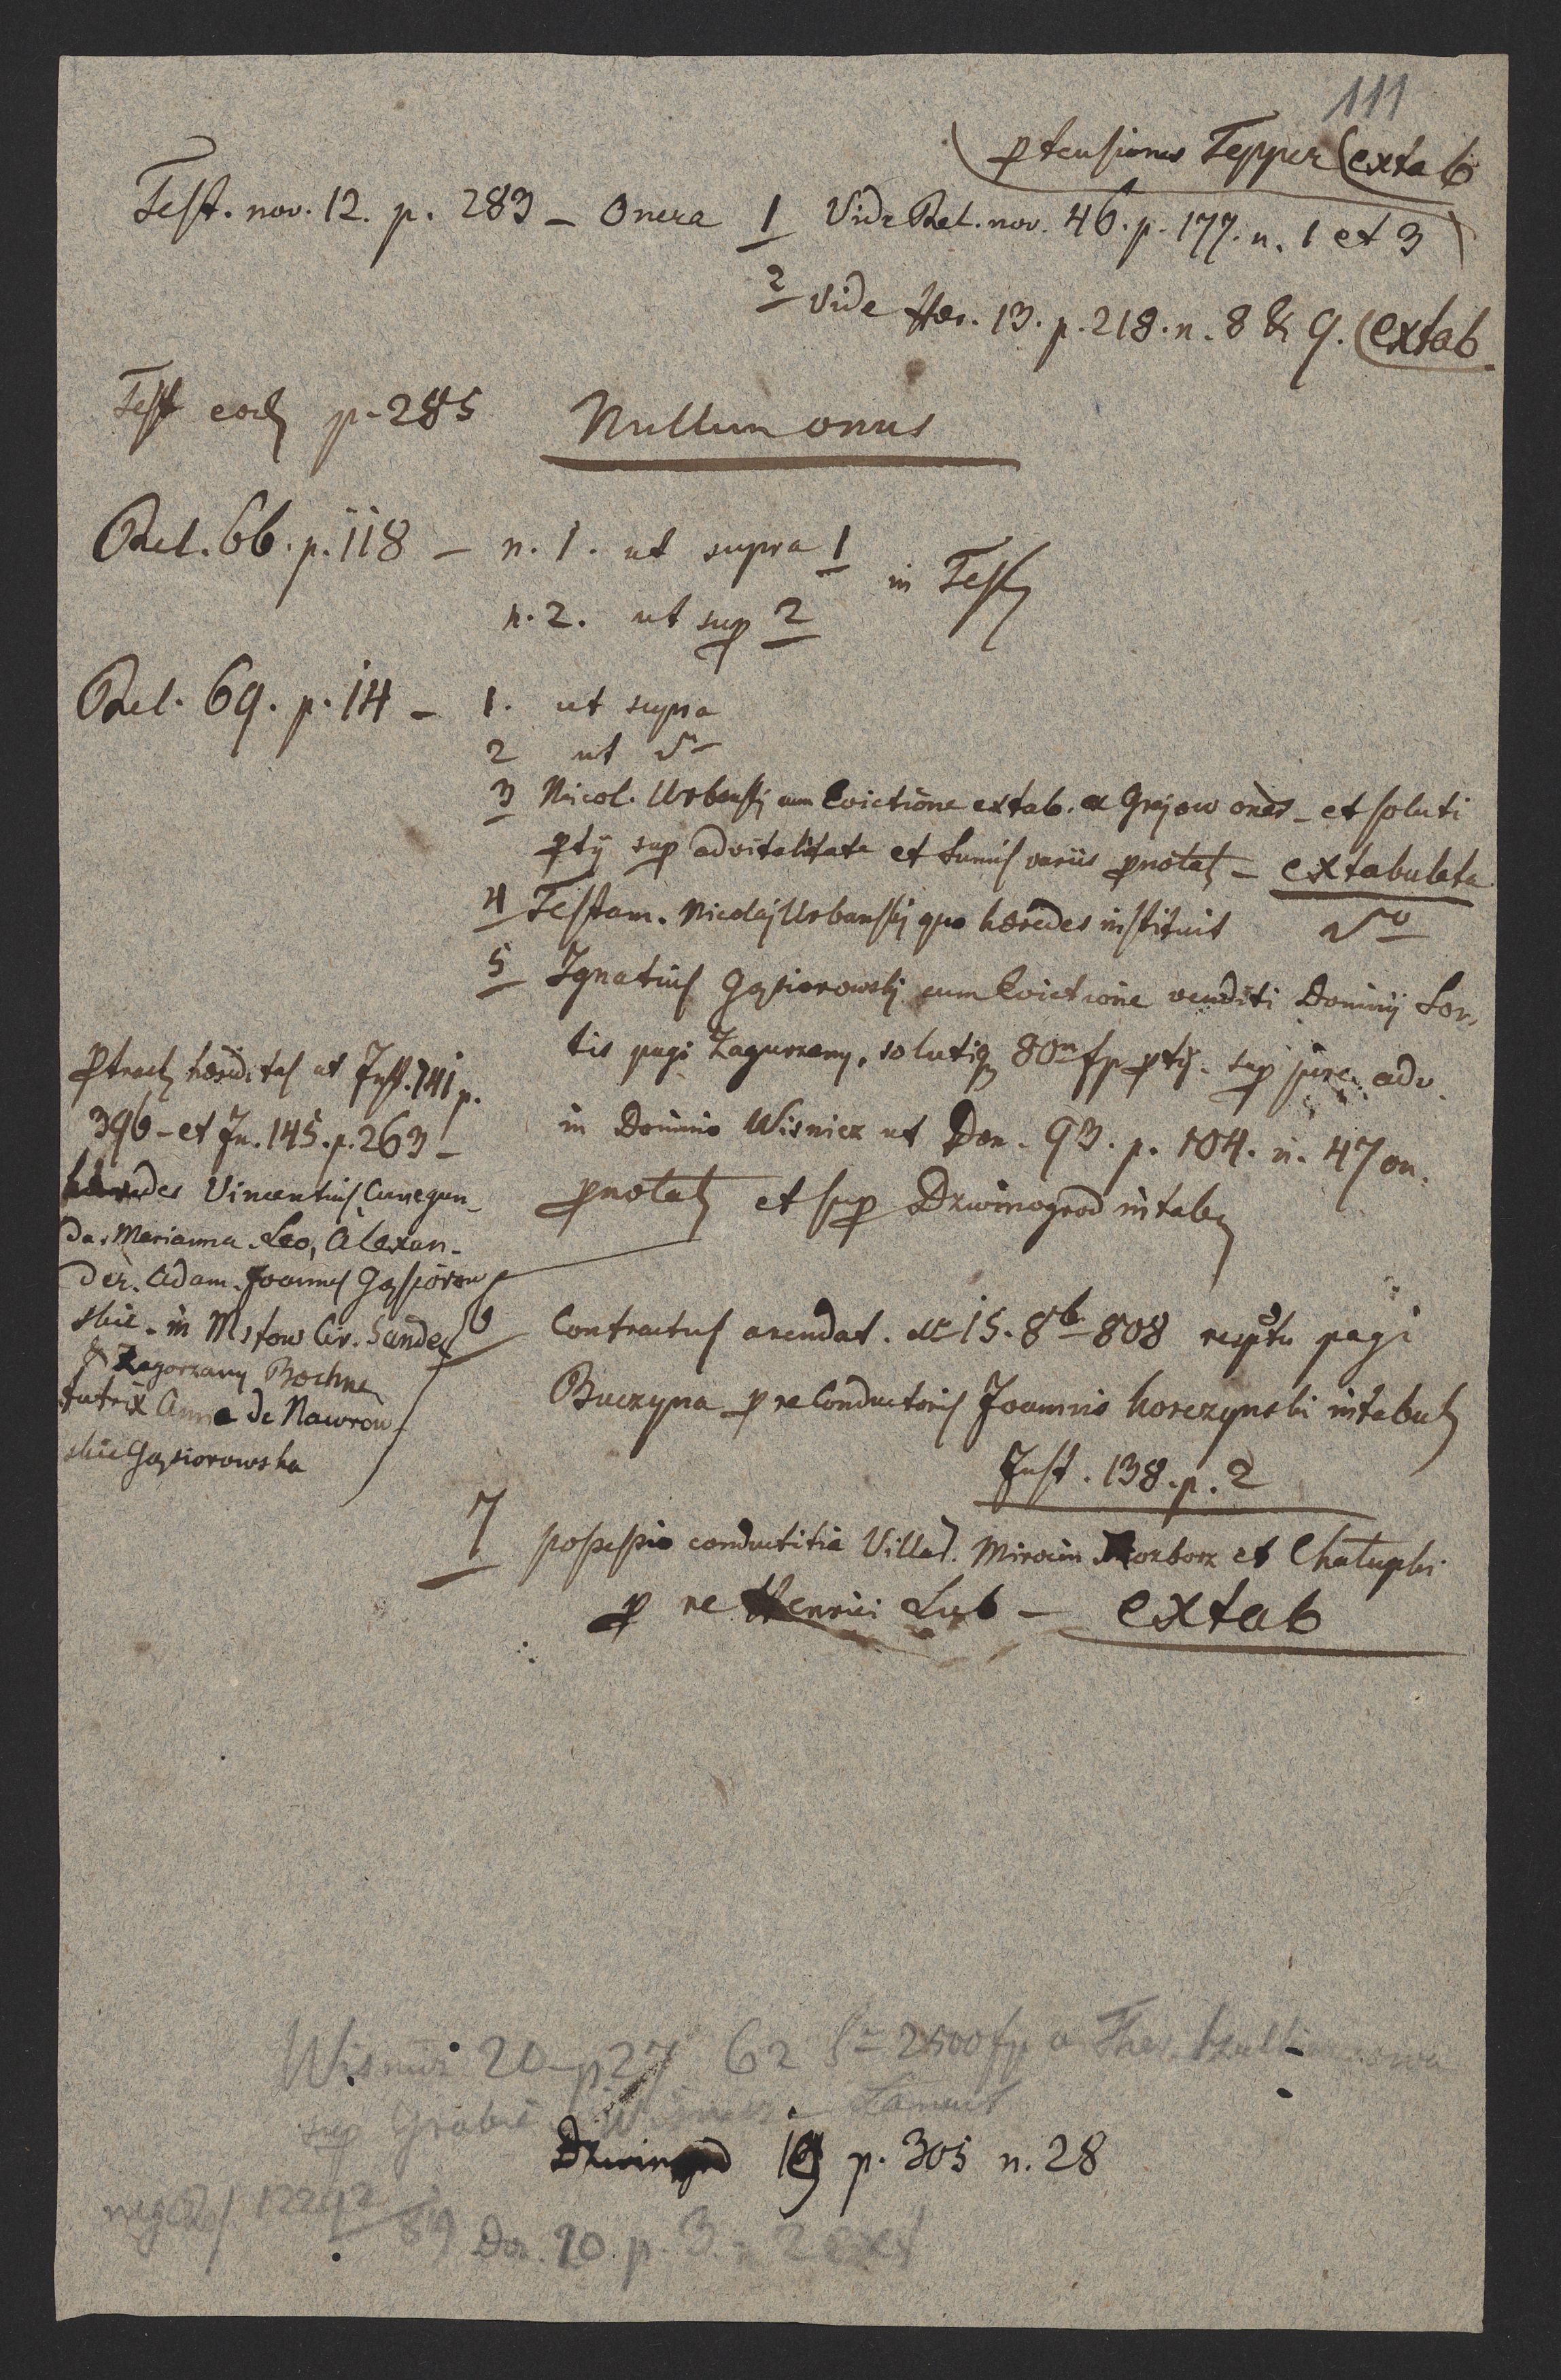 111
ptensiones Tepper (extab
Test. nov. 12. p. 283 – Onera 1 Vide Rel. nov. 46. p. 177. n. 1 et 3
2 Vide Her. 13. p. 218. n. 8 & 9. (extab
Test eod p. 285 Nullum onus
Rel. 66. p. 118 – n. 1. ut supra 1
in Test
n. 2. ut sup 2
Rel. 69. p. 14 – 1. ut supra
2 ut
3 Nicol. Urbanski cum Evictione extab. ex Grajow ones – et soluti
ptij sup advitalitate et Sumis variis pnotat – extabulata
4 Testam. Nicolaj Urbanskj quo hæredes instituit
5 Ignatius Gąsiorowskj cum Evictione venditi Dominij Sor-
tis pagi Zagurzany, solutiq 80m fp ptij. sup jure adv.
in Dominio Wisnicz ut Dom. 93. p. 104. n. 47 on.
pnotat et sup Dzwinogrod intab
ptract hæreditas ut Inst. 141 p.
396 – et In. 145. p. 263 –
hæredes Vincentius, Cunegun-
da, Marianna, Leo, Alexan-
der. Adam. Joannes Gąsiorow
skie – in Mstow Cir. Sandec
& Zagorzany Bochne
tutrix Anna de Nawrow-
skie Gąsiorowska
6 Contractus arendat. dt 15. 8b 808 resptu pagi
Buczyna p re Conductoris Joannis Korczynski intabul
Inst. 138. p. 2
7 possessio conductitia Villar. Mirocin Rozborz et Chałupki
p re Henrici Lub – extab
Wisnicz 20 p 27 62 Sa 2500 fp a Ther.
sup Grabie Wisnicz – Łancut
Dzwinogrod 19 p. 305 n. 28
12292
89 Dom. 20. p. 3. n 2 ext